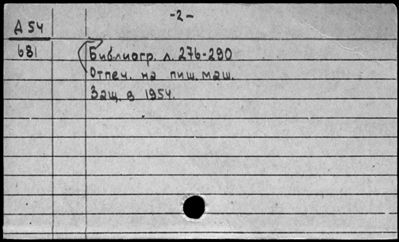 -2-
Д 54
681
Библиогр. л. 276-290
Отпеч. на пиш. маш.
Защ. в 1954.